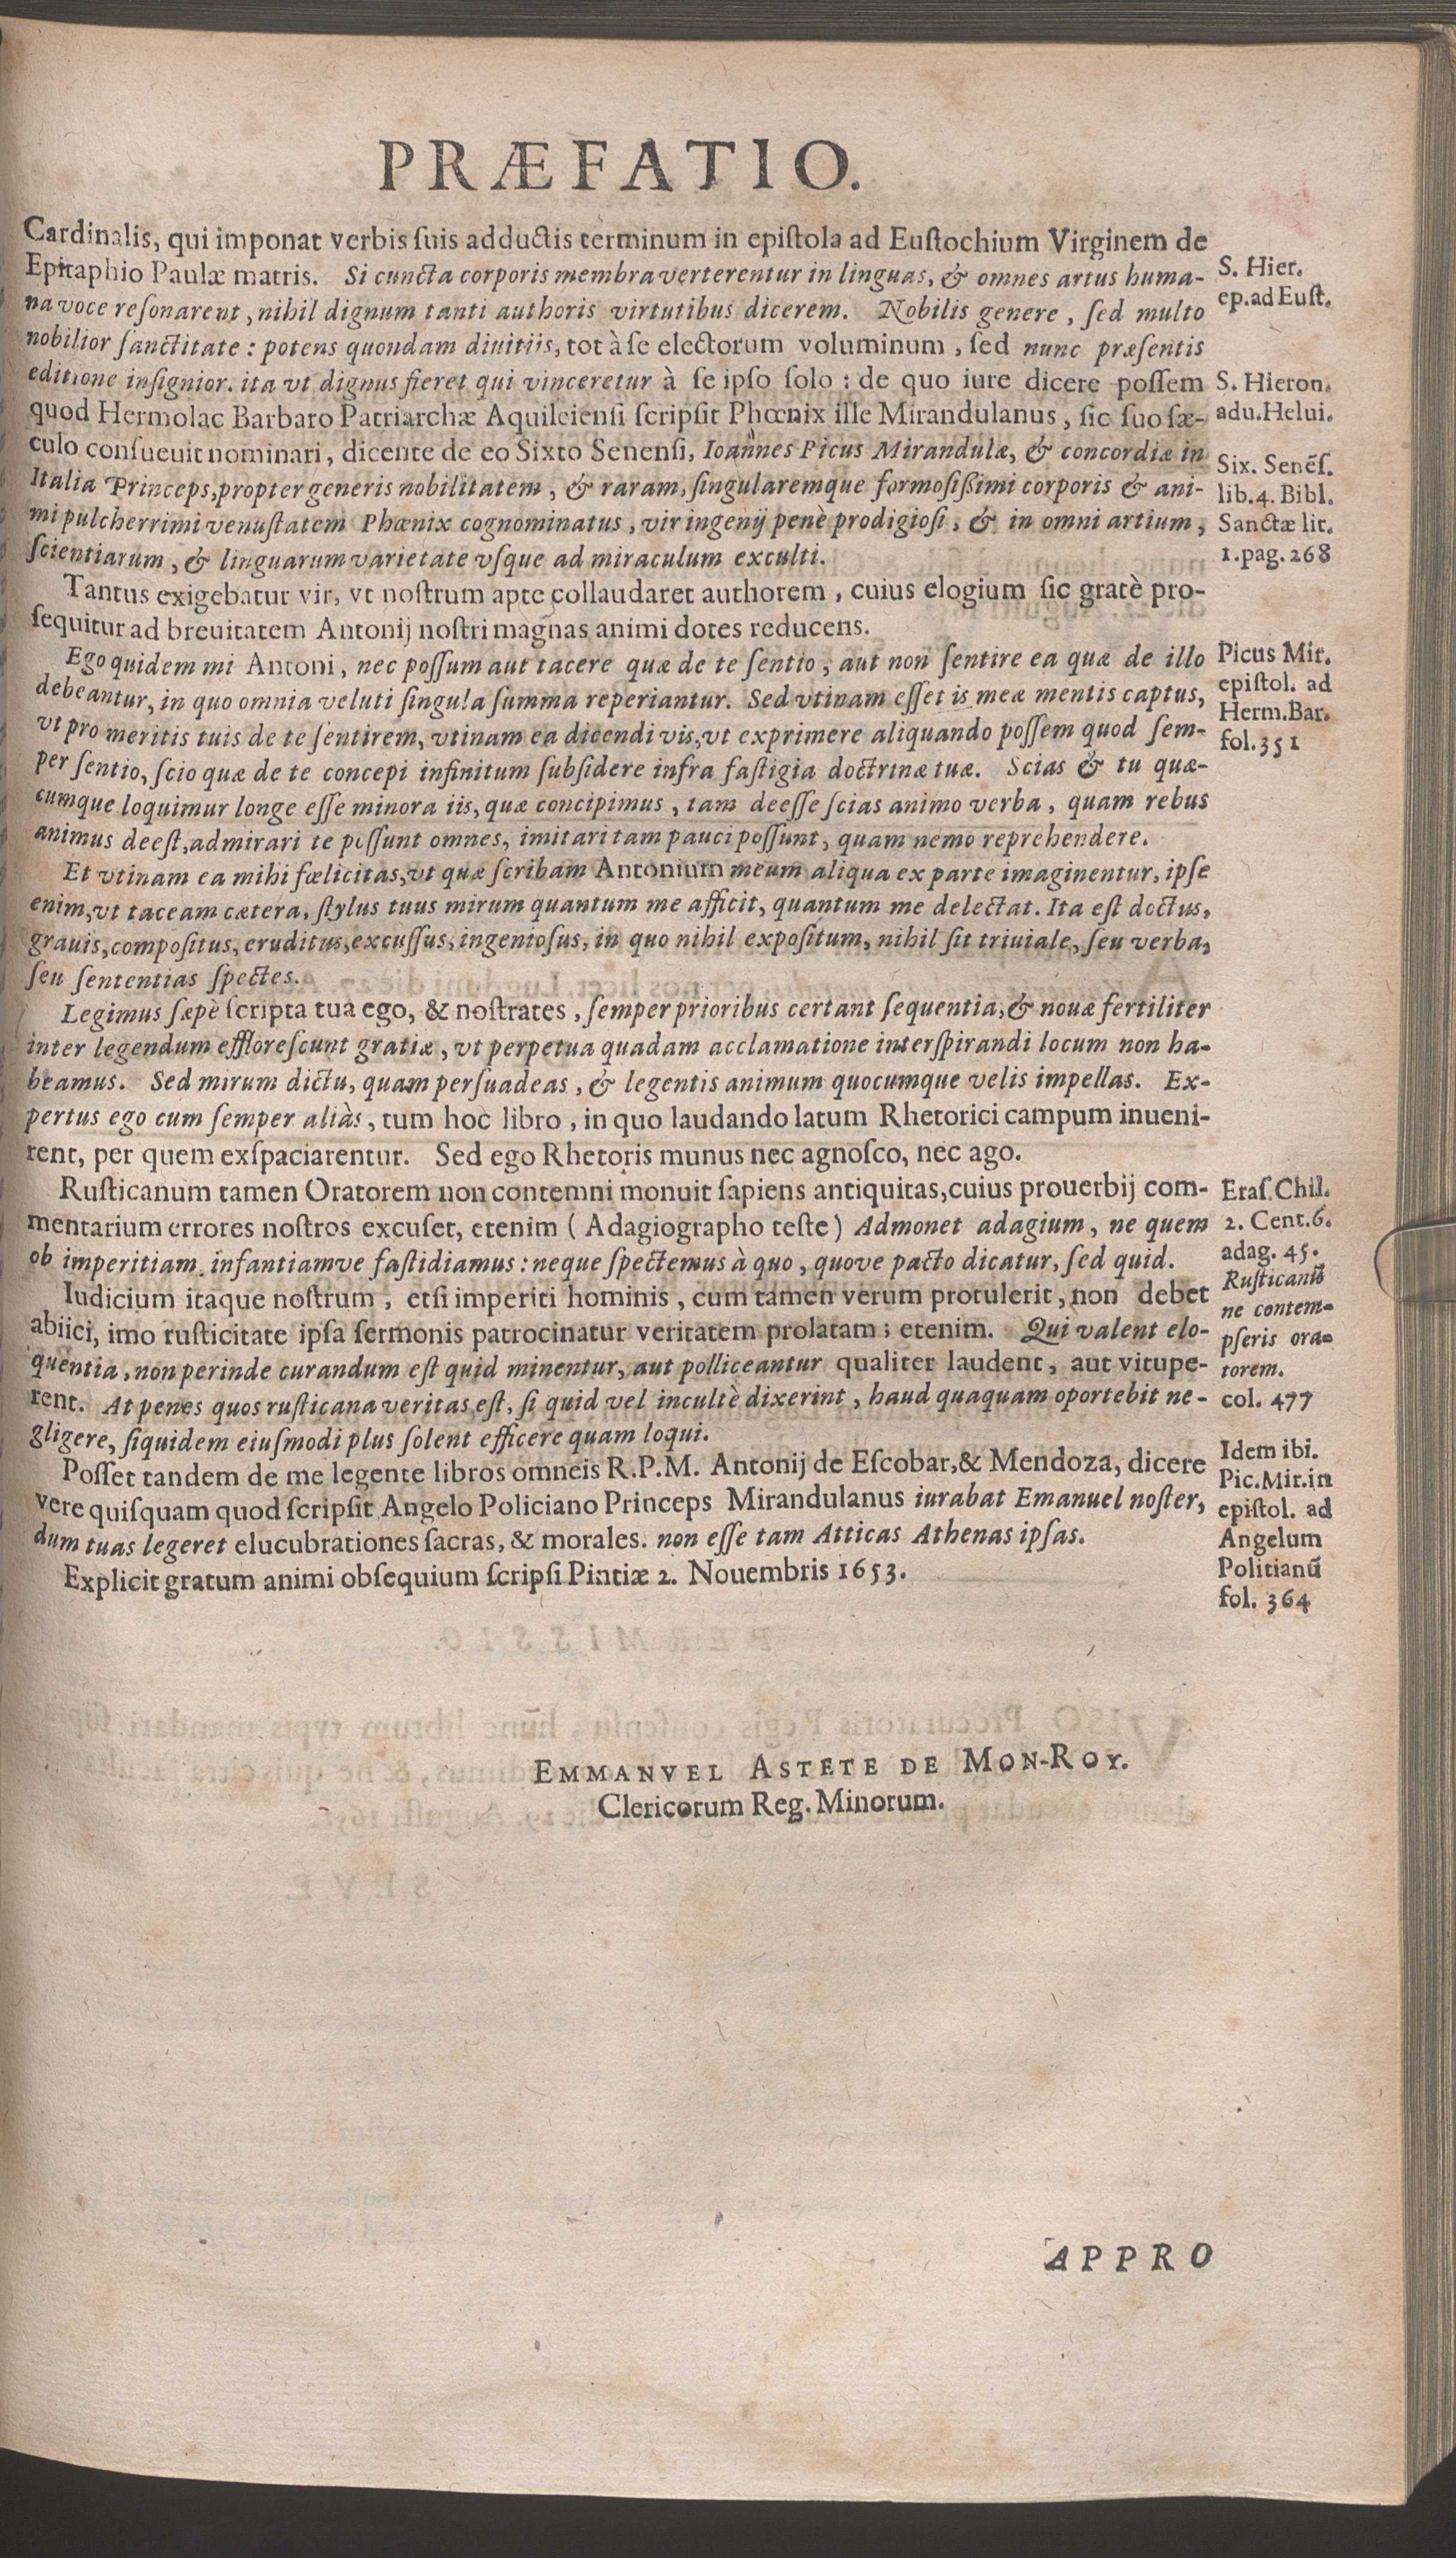 PRÆFATIO.
Cardinalis, qui imponat verbis ſuis adductis terminum in epiſtola ad Euſtochium Virginem de
Epitaphio Paulæ matris. Si cuncta corporis membra verterentur in linguas, & omnes artus huma-
na voce reſonarent, nihil dignum tanti authoris virtutibus dicerem. Nobilis genere, ſed multo
nobilior ſanctitate : potens quondam diuitiis, tot à ſe electorum voluminum, ſed nunc præſentis
editione inſignior. ita vt dignus fieret qui vinceretur à ſe ipſo ſolo : de quo iure dicere poſſem
quod Hermolac Barbaro Patriarchæ Aquileienſi ſcripſit Phœnix ille Mirandulanus, ſic ſuo ſæ-
culo conſueuit nominari, dicente de eo Sixto Senenſi, Ioannes Picus Mirandulæ, & concordiæ in
Italia Princeps, propter generis nobilitatem, & raram, ſingularemque formoſiſſimi corporis & ani-
mi pulcherrimi venuſtatem Phœnix cognominatus, vir ingenij penè prodigioſi, & in omni artium,
ſcientiarum, & linguarum varietate vſque ad miraculum exculti.
Tantus exigebatur vir, vt noſtrum apte collaudaret authorem, cuius elogium ſic gratè pro-
ſequitur ad breuitatem Antonij noſtri magnas animi dotes reducens.
Ego quidem mi Antoni, nec poſſum aut tacere quæ de te ſentio, aut non ſentire ea quæ de illo
debeantur, in quo omnia veluti ſingula ſumma reperiantur. Sed vtinam eſſet is meæ mentis captus,
vt pro meritis tuis de te ſentirem, vtinam ea dicendi vis, vt exprimere aliquando poſſem quod ſem-
per ſentio, ſcio quæ de te concepi infinitum ſubſidere infra faſtigia doctrinæ tuæ. Scias & tu quæ-
cumque loquimur longe eſſe minora iis, quæ concipimus, tam deeſſe ſcias animo verba, quam rebus
animus deeſt, admirari te poſſunt omnes, imitari tam pauci poſſunt, quam nemo reprehendere.
Et vtinam ea mihi fœlicitas, vt quæ ſcribam Antonium meum aliqua ex parte imaginentur, ipſe
enim, vt taceam cætera, ſtylus tuus mirum quantum me afficit, quantum me delectat. Ita eſt doctus,
grauis, compoſitus, eruditus, excuſſus, ingenioſus, in quo nihil expoſitum, nihil ſit triuiale, ſeu verba,
ſeu ſententias ſpectes.
Legimus ſæpè ſcripta tua ego, & noſtrates, ſemper prioribus certant ſequentia, & nouæ fertiliter
inter legendum effloreſcunt gratiæ, vt perpetua quadam acclamatione interſpirandi locum non ha-
beamus. Sed mirum dictu, quam perſuadeas, & legentis animum quocumque velis impellas. Ex-
pertus ego cum ſemper aliàs, tum hoc libro, in quo laudando latum Rhetorici campum inueni-
rent, per quem exſpaciarentur. Sed ego Rhetoris munus nec agnoſco, nec ago.
Ruſticanum tamen Oratorem non contemni monuit ſapiens antiquitas, cuius prouerbij com-
mentarium errores noſtros excuſet, etenim ( Adagiographo teſte ) Admonet adagium, ne quem
ob imperitiam, infantiamve faſtidiamus : neque ſpectemus à quo, quove pacto dicatur, ſed quid.
Iudicium itaque noſtrum, etſi imperiti hominis, cum tamen verum protulerit, non debet
abiici, imo ruſticitate ipſa ſermonis patrocinatur veritatem prolatam ; etenim. Qui valent elo-
quentia, non perinde curandum eſt quid minentur, aut polliceantur qualiter laudent, aut vitupe-
rent. At penes quos ruſticana veritas eſt, ſi quid vel incultè dixerint, haud quaquam oportebit ne-
gligere, ſiquidem eiuſmodi plus ſolent efficere quam loqui.
Poſſet tandem de me legente libros omneis R.P.M. Antonij de Eſcobar, & Mendoza, dicere
vere quiſquam quod ſcripſit Angelo Policiano Princeps Mirandulanus iurabat Emanuel noſter,
dum tuas legeret elucubrationes ſacras, & morales. non eſſe tam Atticas Athenas ipſas.
Explicit gratum animi obſequium ſcripſi Pintiæ 2. Nouembris 1653.
S. Hier.
ep. ad Euſt.
S. Hieron.
adu. Helui.
Six. Senēſ.
lib. 4. Bibl.
Sanctæ lit.
1. pag. 268
Picus Mir.
epiſtol. ad
Herm. Bar.
fol. 351
Eraſ. Chil.
2. Cent. 6.
adag. 45.
Ruſticanū
ne contem-
pſeris ora-
torem.
col. 477
Idem ibi.
Pic. Mir. in
epiſtol. ad
Angelum
Politianū
fol. 364
EMMANVEL ASTETE DE MON-ROY.
Clericorum Reg. Minorum.
APPRO